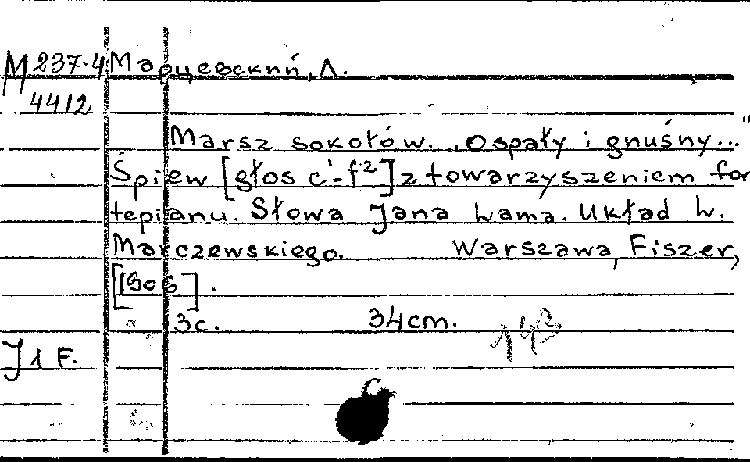 М 237-4 Марчевский, Л.
4412
Marsz sokołów. „Ospały i gnuśny..."
Śpiew [głos c¹-f²] z towarzyszeniem for
tepianu. Słowa Jana Lama. Układ L.
Marczewskiego. Warszawa, Fiszer,
[1906].
3c. 34cm.
J 1 F.